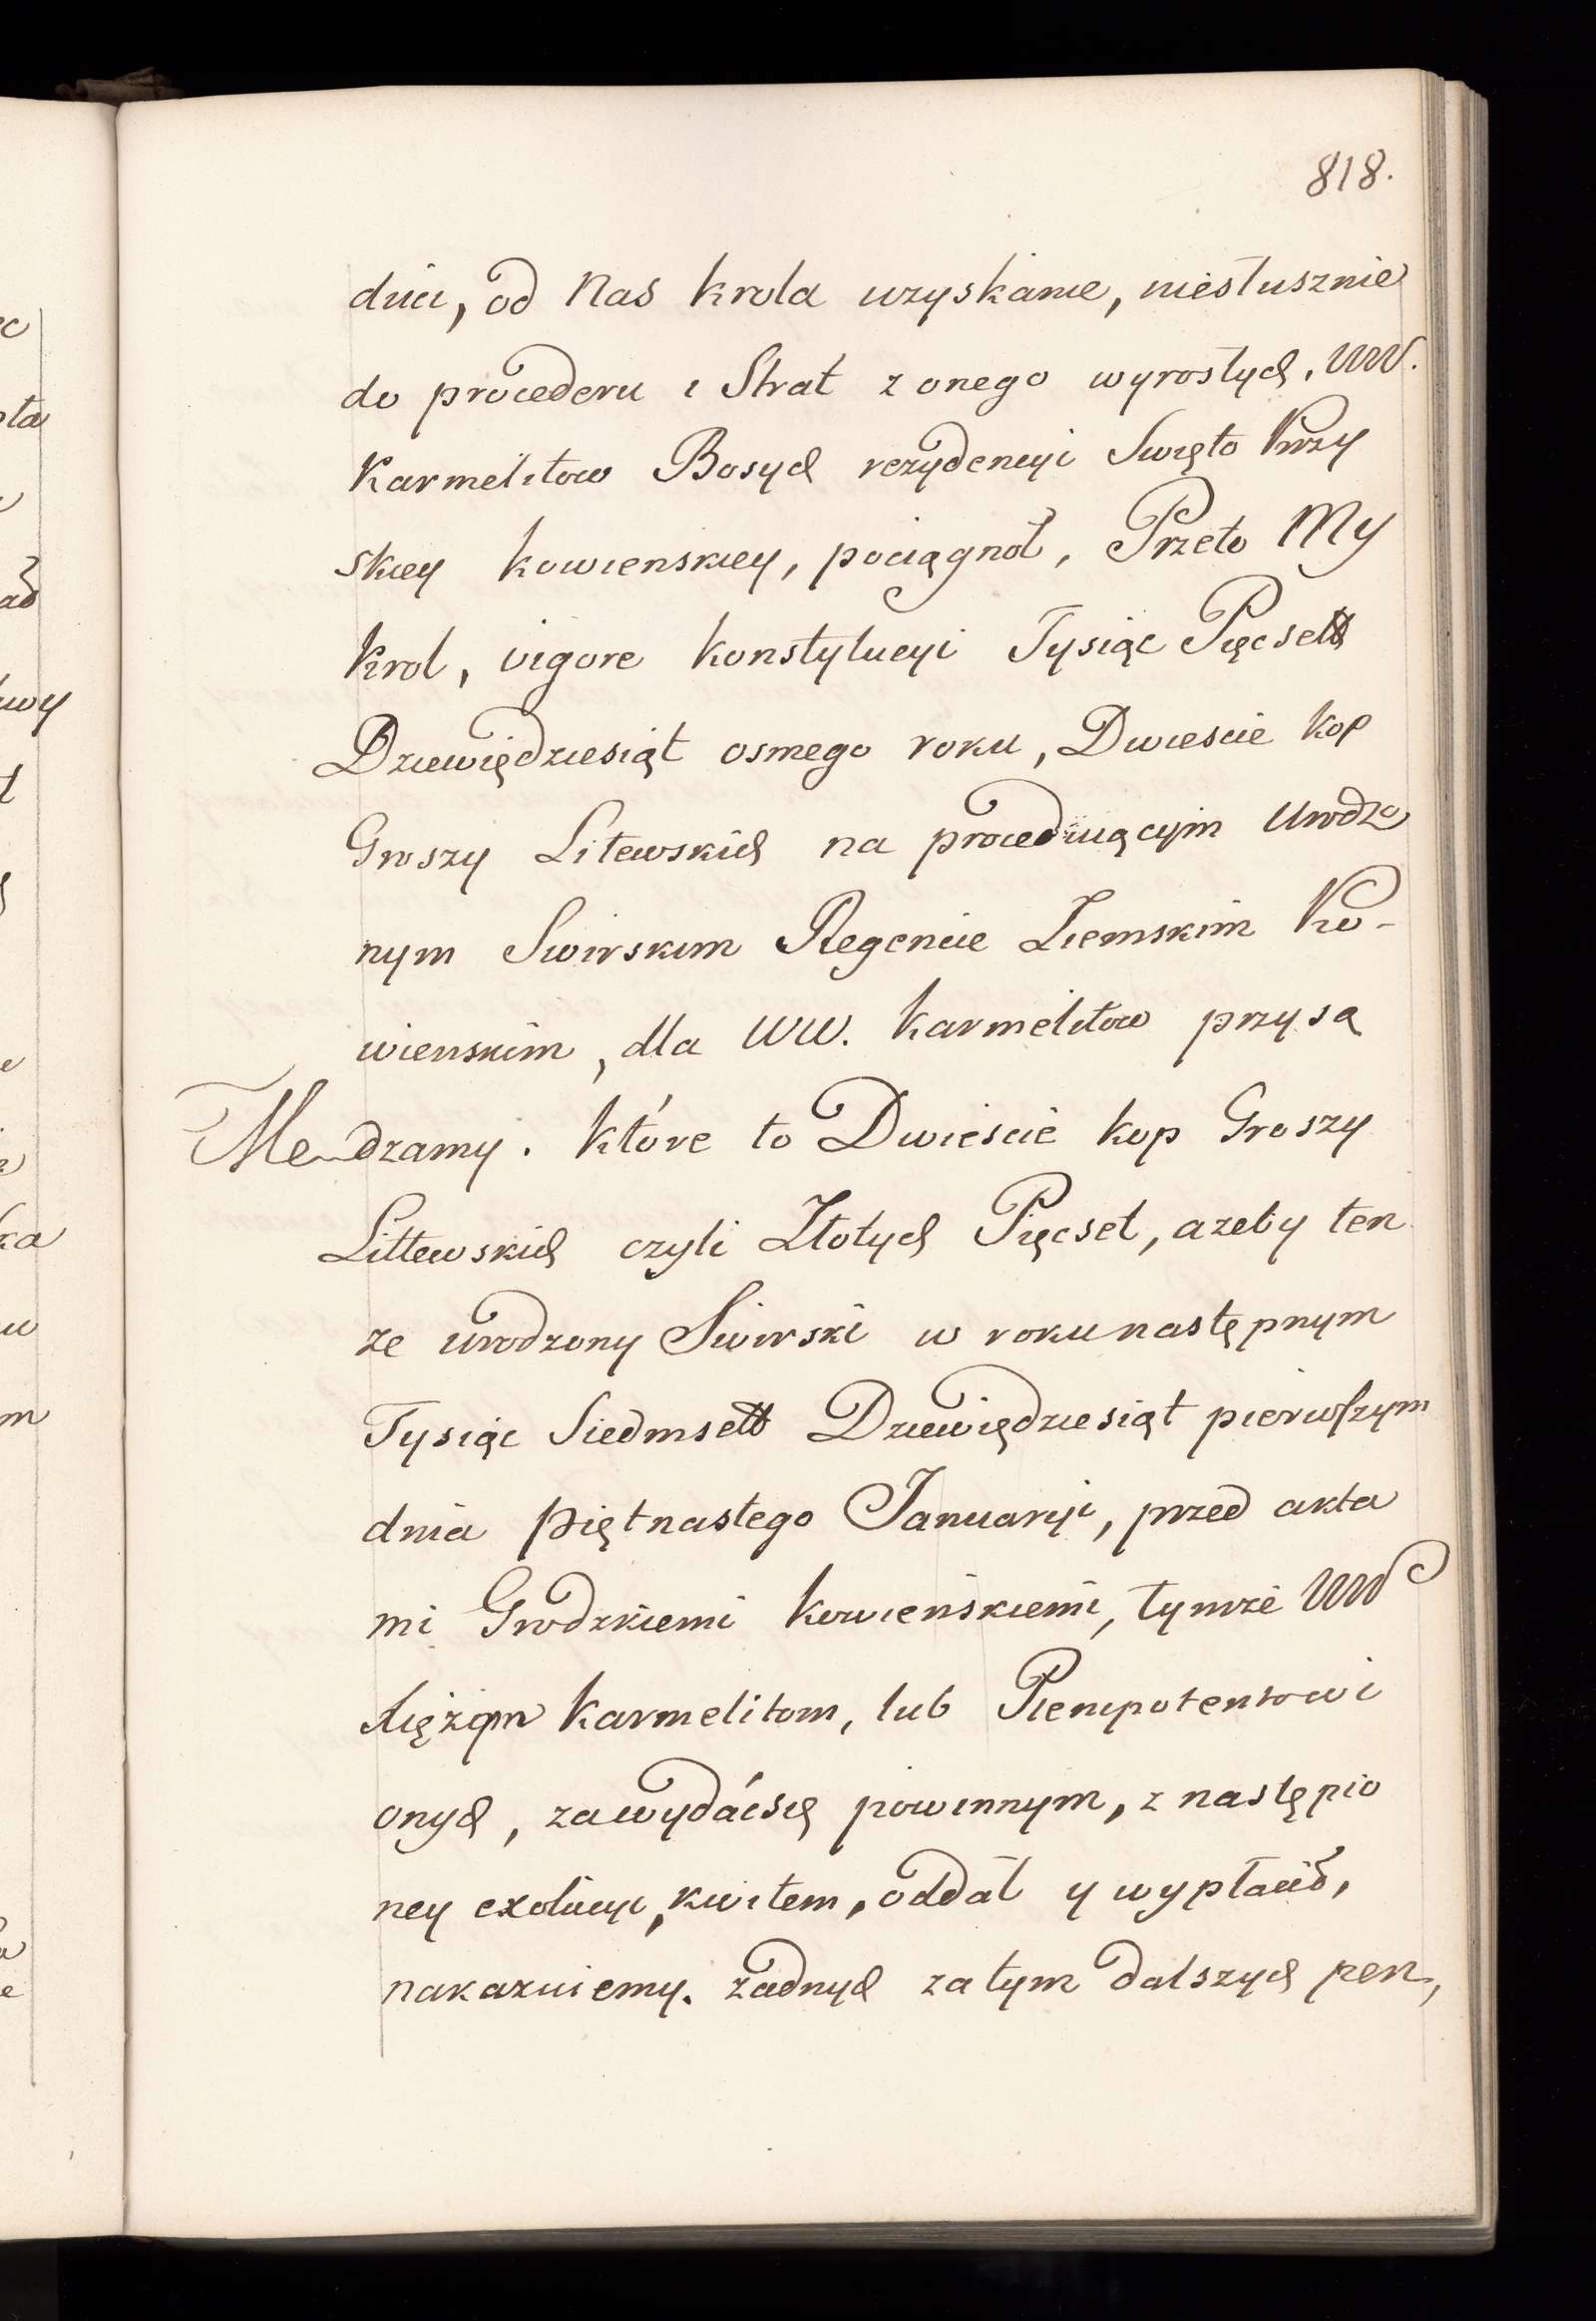 818.
dnia, od Nas krola uzyskanie, niesłusznie
do procederu i Strat z onego wyrosłych, WW.
Karmelitow Bosych rezydencyi Swięto Krzy
skiey kowienskiey, pociągnoł, Przeto My
Krol, vigore Konstytucyi Tysiąc Pięcsett
Dziewiędziesiąt osmego roku, Dwiescie kop
Groszy Litewskich na procedującym Urodzo
nym Swirskim Regencie Ziemskim Ko-
wienskim, dla WW. Karmelitow przysą
dzamy. które to Dwieście kop Groszy
Littewskich czyli Złotych Pięcset, azeby ten
ze urodzony Swirski w roku następnym
Tysiąc Siedmsett Dziewiędziesiąt pierwszym
dnia piętnastego Januaryi, przed akta
mi Grodzkiemi kowieńskiemi, tymże WW
Xiężom Karmelitom, lub Plenipotentowi
onych, za wydać się powinnym, z nastęṗio
ney exolucyi, kwitem, oddał y wypłacił,
nakazuiemy. żadnych zatym dalszych pen,